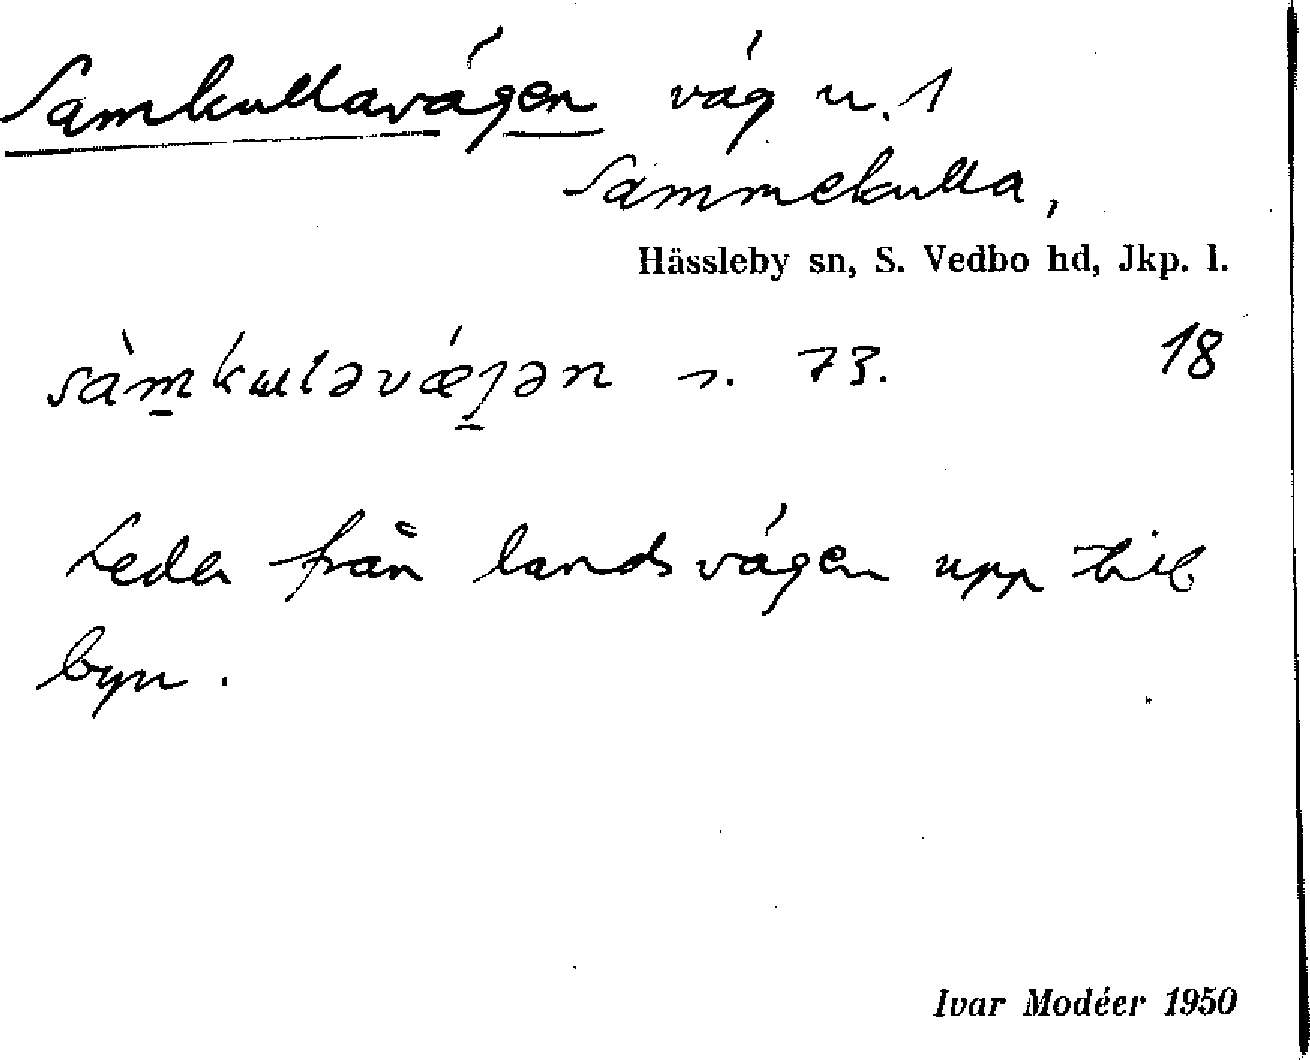 Samkullavägen väg u. 1
Sammekulla,
Hässleby sn, S. Vedbo hd, Jkp. l.
sàm̱kɯləvǽjən s. 73. 18
Leder från landsvägen upp till
byn.
Ivar Modéer 1950